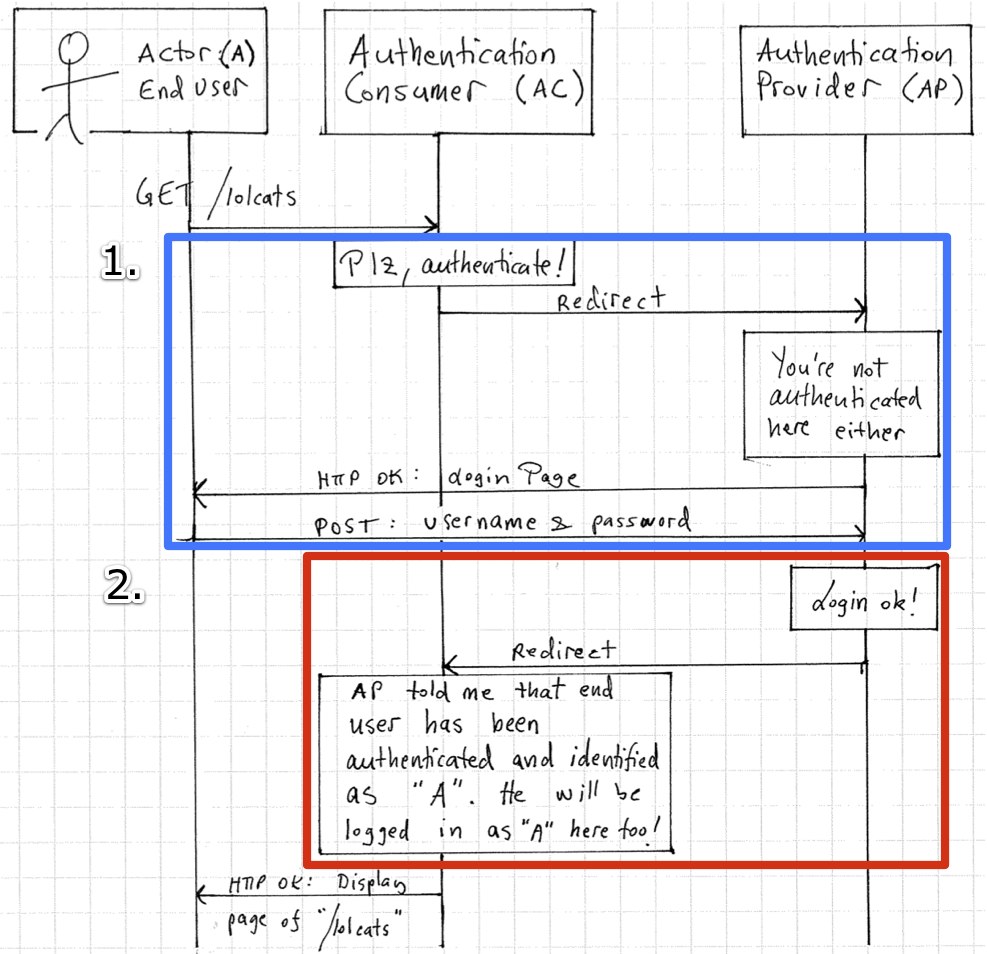 Actor:(A)
End user
Authentication
Consumer (AC)
Authentication
Provider (AP)
GET /lolcats
1.
Plz, authenticate!
Redirect
You're not
authenticated
here either
HTTP OK: Login Page
POST: username & password
2.
Login ok!
Redirect
AP told me that end
user has been
authenticated and identified
as "A". He will be
logged in as "A" here too!
HTTP OK: Display
page of "/lolcats"